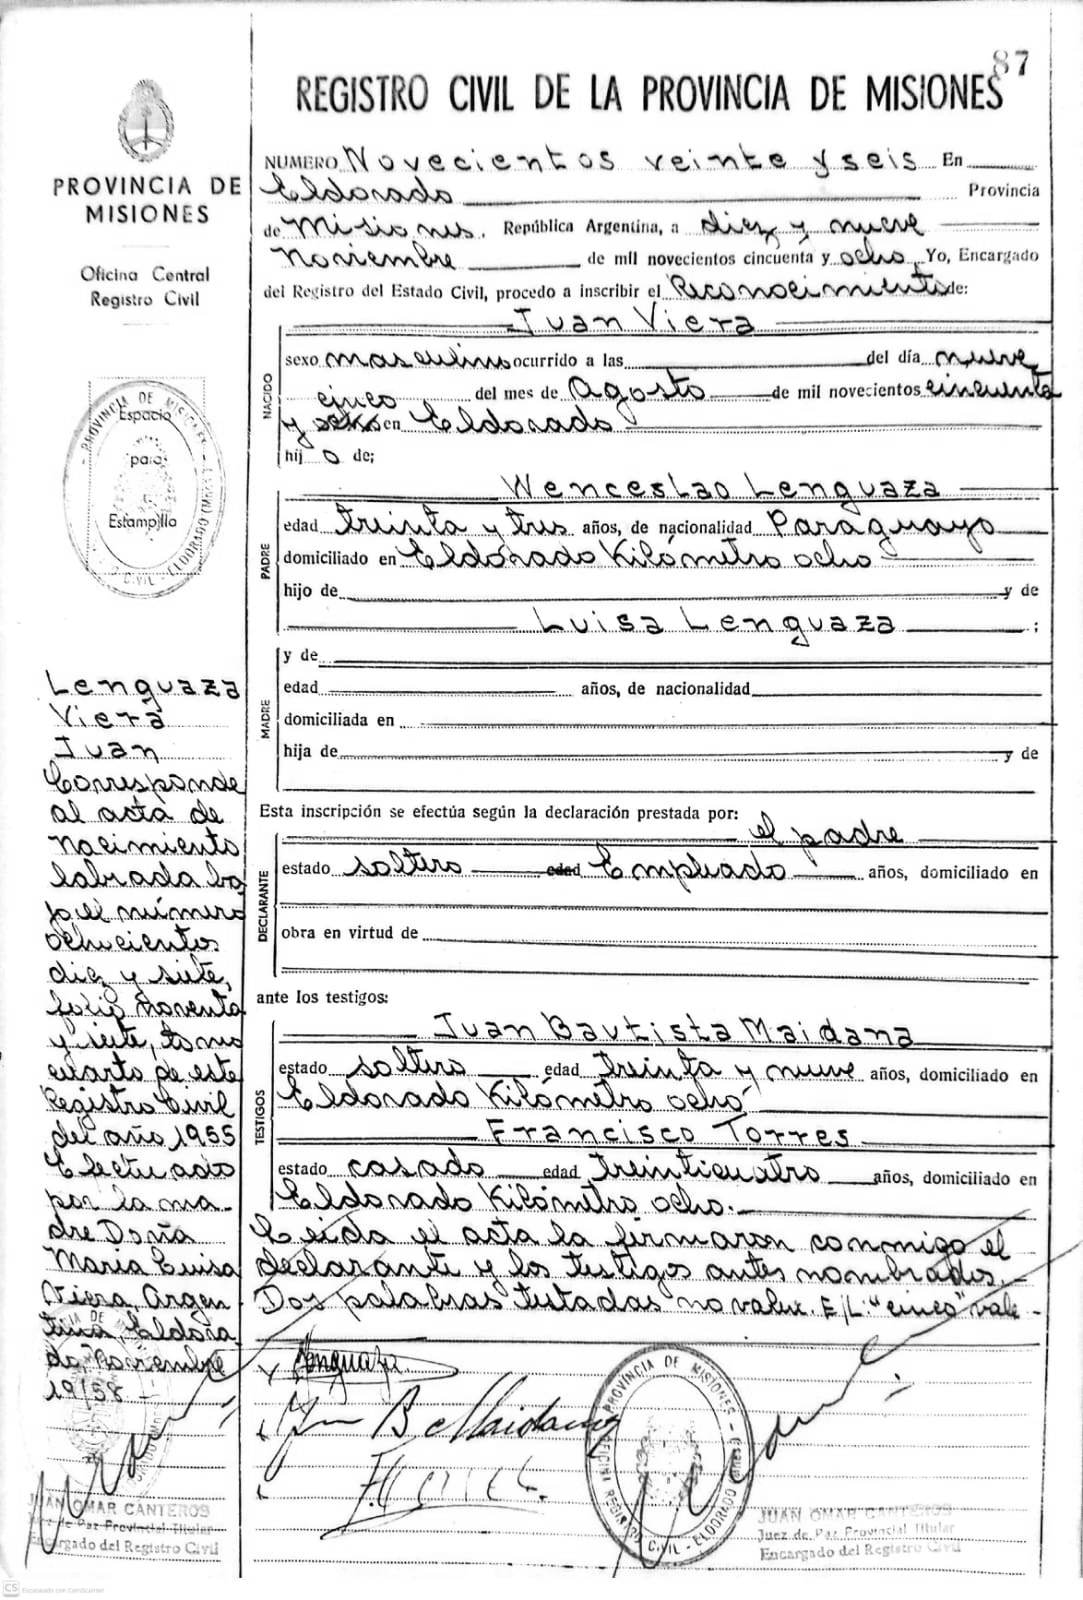 87
REGISTRO CIVIL DE LA PROVINCIA DE MISIONES
PROVINCIA DE
MISIONES
Oficina Central
Registro Civil
NUMERO Novecientos veinte y seis En
Eldorado Provincia
de Misiones. República Argentina, a diez y nueve
Noviembre de mil novecientos cincuenta y ocho, Yo, Encargado
del Registro del Estado Civil, procedo a inscribir el Reconocimiento de:
NACIDO
Juan Viera
sexo masculino ocurrido a las del día nueve
cinco del mes de Agosto de mil novecientos cincuenta
y en Eldorado
hij o de;
PROVINCIA DE MISIONES
Espacio
para
Estampilla
CIVIL - ELDORADO
PADRE
Wenceslao Lenguaza
edad treinta y tres años, de nacionalidad Paraguayo
domiciliado en Eldorado Kilómetro ocho
hijo de y de
Luisa Lenguaza ;
MADRE
y de
edad años, de nacionalidad
domiciliada en
hija de y de
Esta inscripción se efectúa según la declaración prestada por:
DECLARANTE
el padre
estado soltero edad Empleado años, domiciliado en
obra en virtud de
ante los testigos:
TESTIGOS
Juan Bautista Maidana
estado soltero edad treinta y nueve años, domiciliado en
Eldorado Kilómetro ocho
Francisco Torres
estado casado edad treinticuatro años, domiciliado en
Eldorado Kilómetro ocho.
Leida el acta la firmaron conmigo el
declarante y los testigos antes nombrados.
Dos palabras testadas no valen. E/L: "cinco" vale
Lenguaza
Viera
Juan
Corresponde
al acta de
nacimiento
labrada ba
jo el número
ochocientos
diez y siete,
folio noventa
y siete, tomo
cuarto de este
Registro Civil
del año 1955
Efectuado
por la ma-
dre Doña
Maria Luisa
Viera, Argen
tina, Eldora
do, Noviembre
19/58
Lenguaza
B Maidana
PROVINCIA DE MISIONES
OFICINA REGISTRO CIVIL - ELDORADO
JUAN OMAR CANTEROS
Juez de Paz Provincial Titular
Encargado del Registro Civil
JUAN OMAR CANTEROS
Juez de Paz Provincial Titular
Encargado del Registro Civil
CS Escaneado con CamScanner